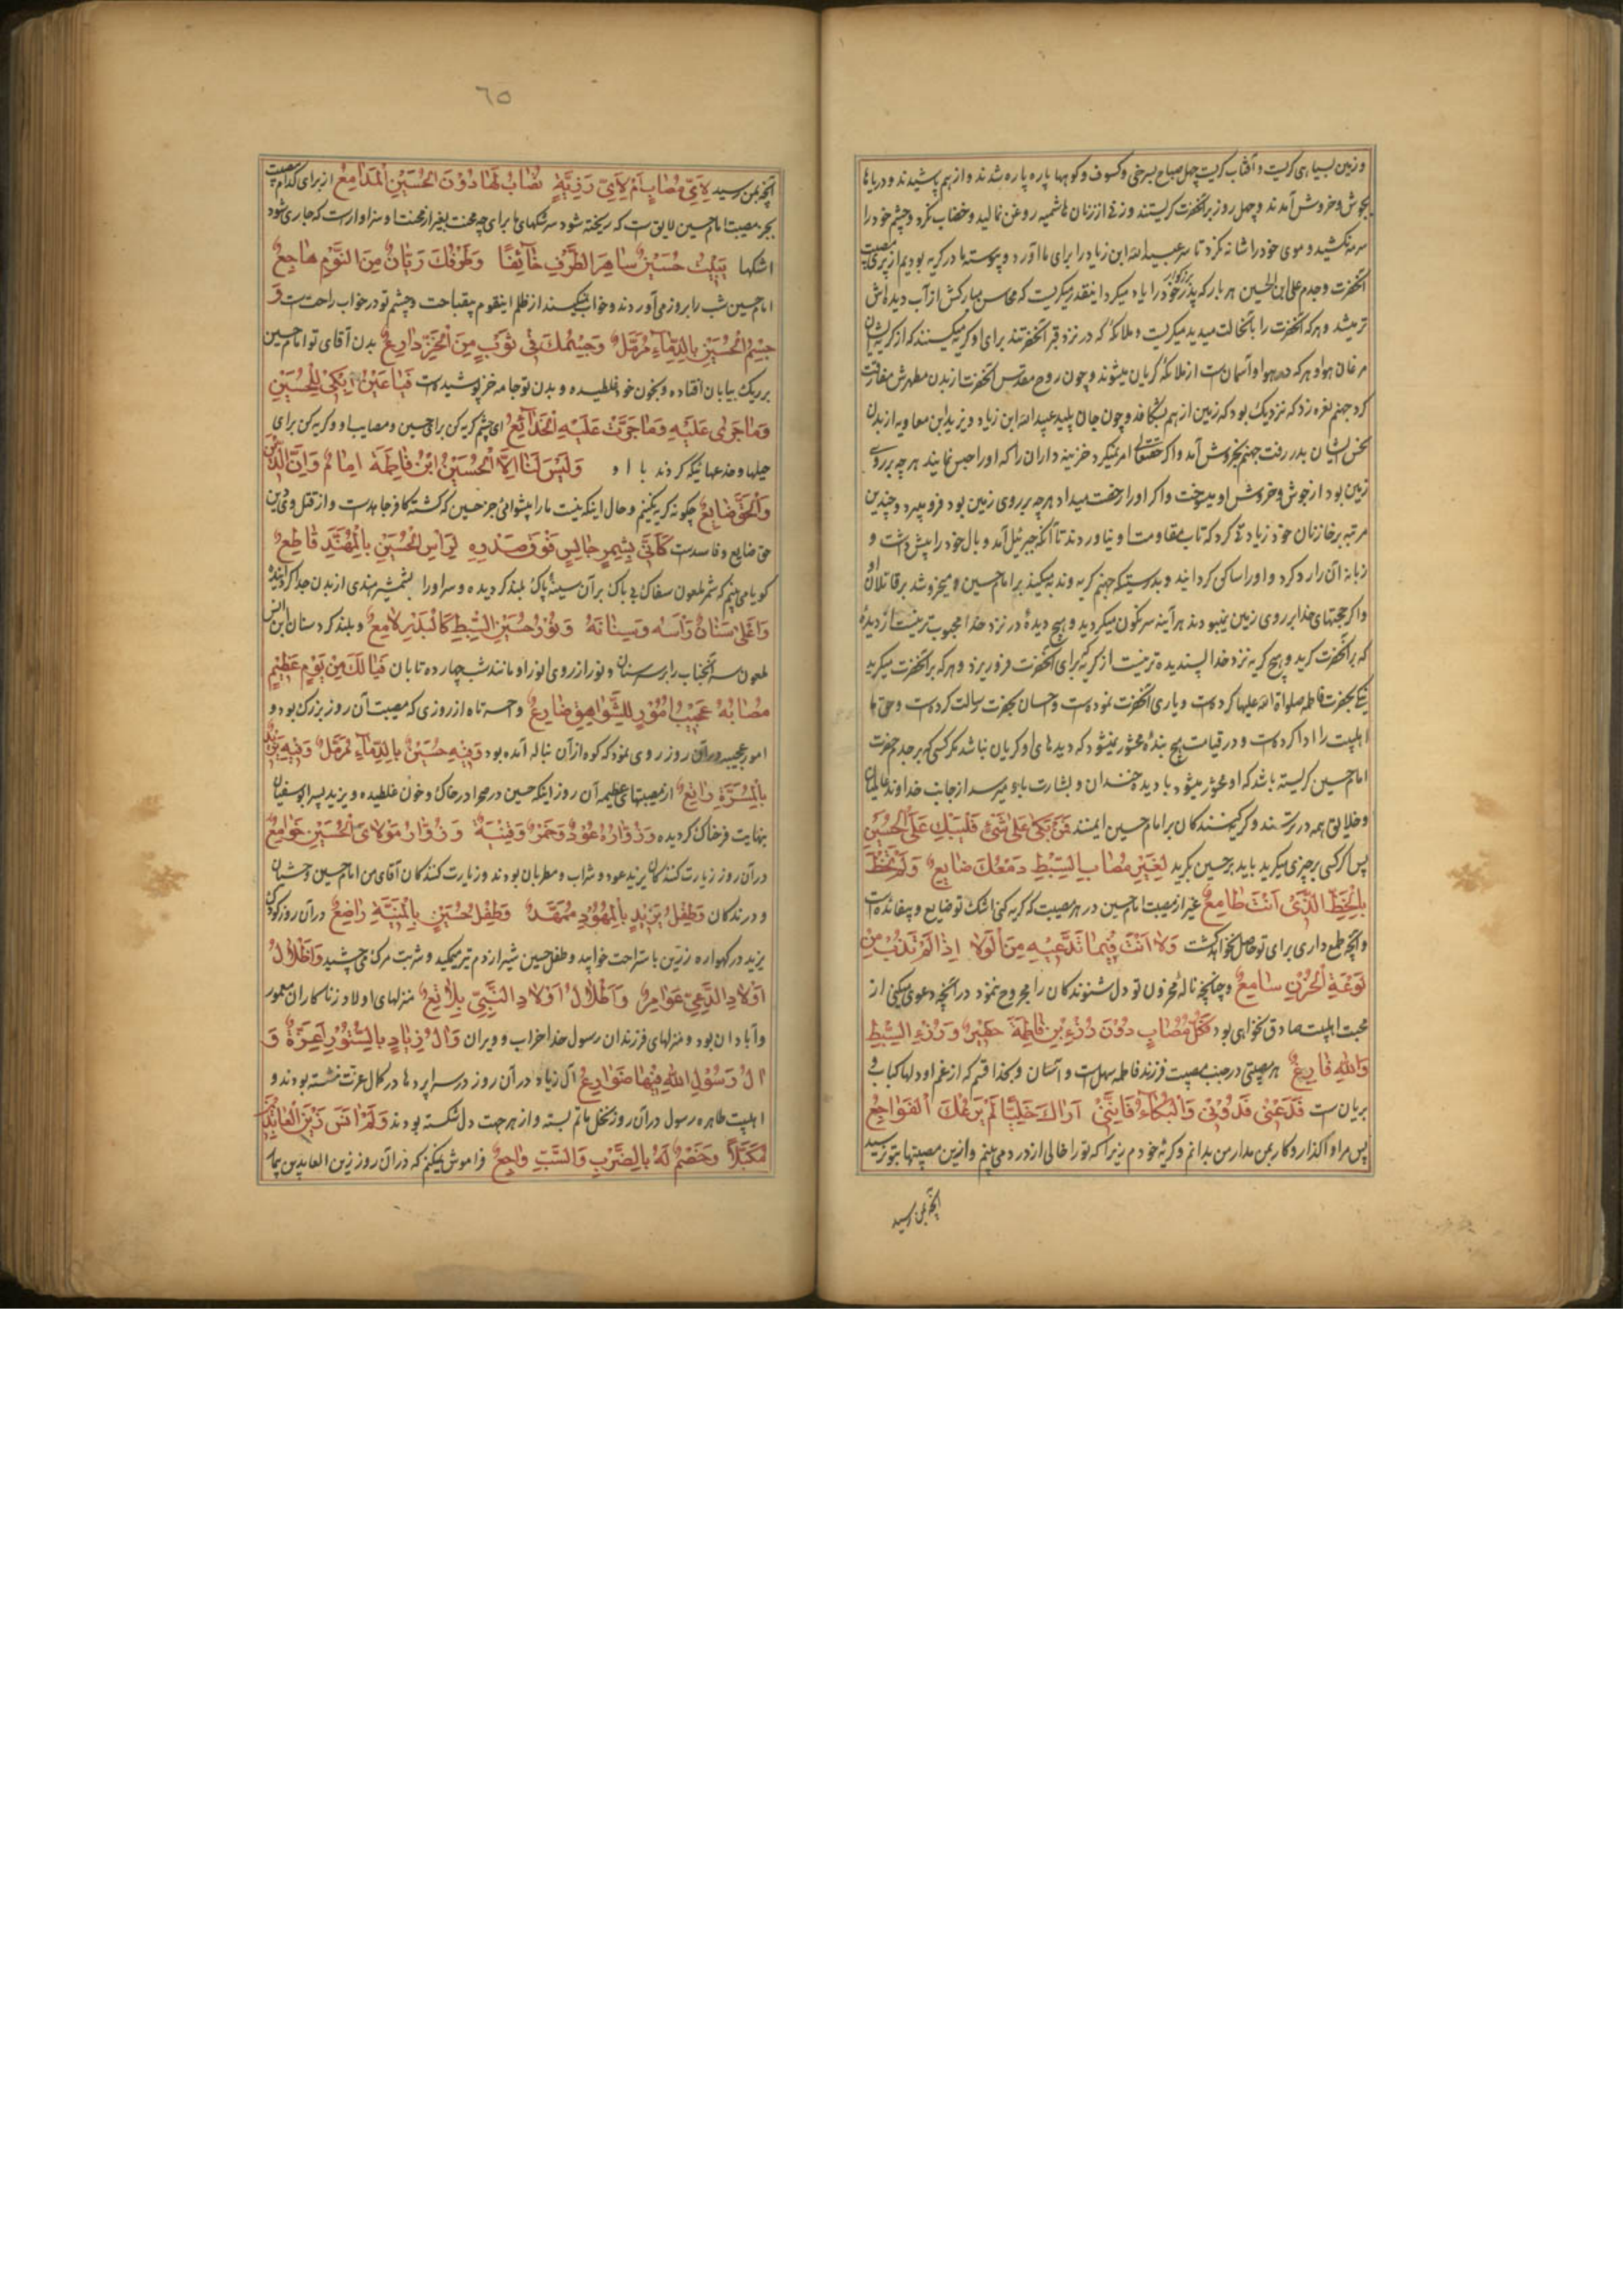 و زمین بسیاهی گریست و آفتاب گریست چهل صباح بسرخی و کسوف و کوهها پاره پاره شدند و از هم پاشیدند و دریاها
بجوش و خروش آمدند و چهل روز بر آنحضرت گریستند و زنی از زنان هاشمیه روغن نمالید و خضاب نکرد و چشم خود را
سرمه نکشید و موی خود را شانه نکرد تا سر عبیدالله ابن زیاد را برای ما آورد و پیوسته ما در گریه بودیم از برای مصیبت
آنحضرت و جدم علی ابن الحسین هر بار که پدر بزرگوار خود را یاد میکرد اینقدر میگریست که محاسن مبارکش از آب دیدهاش
تر میشد و هر که آنحضرت را بآنحالت میدید میگریست و ملائکه که در نزد قبر آنحضرتند برای او گریه میکنند که از گریه ایشان
مرغان هوا و هر که در هوا و آسمان است از ملائکه گریان میشوند و چون روح مقدس آنحضرت از بدن مطهرش مفارقت
کرد جهنم نعره زد که نزدیک بود که زمین از هم بشکافد و چون جان پلید عبیدالله ابن زیاد و یزید ابن معاویه از بدن
نحس ایشان بدر رفت جهنم بخروش آمد و اگر حقتعالی امر نمیکرد خزینه داران را که او را حبس نمایند هر چه بر روی
زمین بود از جوش و خروش او میسوخت و اگر او را رخصت میداد هر چه بر روی زمین بود فرو میبرد و چندین
مرتبه بر خازنان خود زیادتی کرد که تاب مقاومت او نیاوردند تا آنکه جبرئیل آمد و بال خود را پیش داشت و
زبانه آن را رد کرد و او را ساکن گردانید و بدرستیکه جهنم گریه و ندبه میکند بر امام حسین و میخروشد بر قاتلان او
و اگر حجتهای خدا بر روی زمین نمیبودند هر آینه سرنگون میگردید و هیچ دیدهٔ در نزد خدا محبوبتر نیست از دیدهٔ
که بر آنحضرت گرید و هیچ گریه نزد خدا پسندیده تر نیست از گریهٔ که برای آنحضرت فرو ریزد و هر که بر آنحضرت میگرید
نیکی بحضرت فاطمه صلواة الله علیها کرده است و یاری آنحضرت نموده است و احسان بحضرت رسالت کرده است و حق ما
اهلبیت را ادا کرده است و در قیامت هیچ بندهٔ محشور نمیشود که دیدهای او گریان نباشد مگر کسی که بر جدم حضرت
امام حسین گریسته باشد که او محشور میشود با دیده خندان و بشارت باو میرسد از جانب خداوند عالمیان
و خلایق همه در ترسند و گریه کنندگان بر امام حسین ایمنند فَمَنْ بَکیٰ عَلیٰ شَیْءٍ فَلْیَبْكِ عَلَی الْحُسَیْنِ
پس اگر کسی بر چیزی میگرید باید بر حسین بگرید لِغَیْرِ مُصٰابِ السِّبْطِ دَمْعُكَ ضٰایِعٌ وَلَمْ تَحْظَ
بِالْحَظِّ الَّذی اَنْتَ طٰامِعٌ غیر از مصیبت امام حسین در هر مصیبت که گریه کنی اشک تو ضایع و بیفائده است
و آنچه طمع داری برای تو حاصل نخواهد گشت وَلٰا اَنْتَ فیمٰا تَدَّعیهِ مِنَ الْوِلٰا اِذٰا لَمْ تَذُبْ مِنْ
لَوْعَةِ الْحُزْنِ سٰامِعٌ و چنانچه نالهٔ محزون تو دل شنوندکان را مجروح ننمود در آنچه دعوی میکنی از
محبت اهلبیت صادق نخواهی بود فَکُلُّ مُصٰابٍ دُوْنَ رُزْءِ بْنِ فٰاطِمَةَ حَقیرٌ وَ رُزْءُ السِّبْطِ
وَاللهِ فٰارِعٌ هر مصیبتی در جنب مصیبت فرزند فاطمه سهل است و آسان و بخدا قسم که از غم او دلها کباب و
بریان است فَدَعْنی فَدُوْنی وَالْبُکٰاءَ فَاِنَّنی اَرٰاكَ خَلِیًّا لَمْ یَرُعْكَ الْفَوٰاجِعُ
پس مرا واگذار و کار بمن مدار من بدانم و گریهٔ خودم زیرا که تو را خالی از درد میبینم و از این مصیبتها بتو نرسید
آنچه بمن رسید
٦٥
آنچه بمن رسید لِاَیِّ مُصٰابٍ اَمْ لِاَیِّ رَزِیَّةٍ تُصٰابُ لَهٰا دُوْنَ الْحُسَیْنِ الْمَدٰامِعُ از برای کدام مصیبت
بجز مصیبت امام حسین لایق است که ریخته شود سرشکهای ما برای چه محنت بغیر از محنت او سزاوار است که جاری شود
اشکها یَبیتُ حُسَیْنٌ سٰاهِرَ الطَّرْفِ خٰآئِفًا وَطَرْفُكَ رَیّٰانٌ مِنَ النَّوْمِ هٰاجِعٌ
امام حسین شب را بروز میآوردند و خواب نمیکنند از ظلم اینقوم پرقباحت و چشم تو در خواب راحت است وَ
جِسْمُ الْحُسَیْنِ بِالدِّمٰآءِ مُرَمَّلٌ وَجِسْمُكَ فی ثَوْبٍ مِنَ الْخَزِّ دٰارِعٌ بدن آقای تو امام حسین
بر ریک بیابان افتاده و بخون خود غلطیده و بدن تو جامه خز پوشیده است فَیٰا عَیْنُ اِبْکی لِلْحُسَیْنِ
وَمٰا جَریٰ عَلَیْهِ وَمٰا جَرَّتْ عَلَیْهِ الْخَدٰآئِعُ ای چشم گریه کن برای حسین و مصایب او و گریه کن برای
حیلها و خدعهائیکه کردند با او وَلَیْسَ لَنٰا اِلَّا الْحُسَیْنُ ابْنُ فٰاطِمَةَ اِمٰامٌ وَاِنَّ الدّینَ
وَالْحَقَّ ضٰایِعٌ چگونه گریه نکنیم و حال اینکه نیست ما را پیشوائی جز حسین که کشته کافر جاهد است و از قتل وی دین
حق ضایع و فاسد است کَاَنّی بِشِمْرٍ جٰالِسٍ فَوْقَ صَدْرِهِ لِرَاْسِ الْحُسَیْنِ بِالْمُهَنَّدِ قٰاطِعٌ
گویا میبینم که شمر ملعون سفاک بی باک بر آن سینهٔ پاک بلند گردیده و سر او را بشمشیر هندی از بدن جدا گردانیده
وَاَعْلیٰ سَنٰانٌ رَاْسَهُ وَسِنٰانَهُ وَنُوْرُ حُسَیْنِ السِّبْطِ کَالْبَدْرِ لٰامِعٌ و بلند کرد سنان ابن انس
ملعون سر آنجناب را بر سر سنان و نور از روی انور او مانند شب چهارده تابان فَیٰا لَكَ مِنْ یَوْمٍ عَظیمٍ
مُصٰابُهُ عَجیبُ اُمُوْرٍ لِلشَّوٰاهِقِ ضٰارِعٌ و احسرتاه از روزی که مصیبت آن روز بزرک بود و
امور عجیبه در آن روز روی نمود که کوه از آن بناله آمده بود وَفیهِ حُسَیْنٌ بِالدِّمٰآءِ مُرَمَّلٌ وَفیهِ یَزیدٌ
بِالْمَسَرَّةِ رٰاتِعٌ از مصیبتهای عظیمه آن روز اینکه حسین در صحرا در خاک و خون غلطیده و یزید پسر ابوسفیان
بنهایت فرحناک گردیده وَزُوّٰارُهُ عُوْدٌ وَخَمْرٌ وَقینَةٌ وَزُوّٰارُ مَوْلٰایَ الْحُسَیْنِ خَوٰامِعٌ
در آن روز زیارت کنندکان یزید عود و شراب و مطربان بودند و زیارت کنندکان آقای من امام حسین وحشیان
و درندکان وَطِفْلُ یَزیدٍ بِالْمُهُوْدِ مُمَهَّدٌ وَطِفْلُ حُسَیْنٍ بِالْمَنِیَّةِ رٰاضِعٌ در آن روز کودک
یزید در کهواره زرین باستراحت خوابید و طفل حسین شیر از دم تیر میمکید و شربت مرک میچشید وَاَطْلٰالُ
اَوْلٰادِ الدَّعِیِّ عَوٰامِرٌ وَاَطْلٰالُ اَوْلٰادِ النَّبِیِّ بَلٰاقِعٌ منزلهای اولاد زناکاران معمور
و آبادان بود و منزلهای فرزندان رسول خدا خراب و ویران وَاٰلُ زِیٰادٍ بِالسُّتُوْرِ اَعِزَّةٌ وَ
اٰلُ رَسُوْلِ اللهِ فیهٰا ضَوٰارِعٌ آل زیاد در آن روز در سراپردها در کمال عزت نشسته بودند و
اهلبیت طاهره رسول در آن روز نخل ماتم بسته و از هر جهت دل شکسته بودند وَلَمْ اَنْسَ زَیْنَ الْعٰابِدینَ
مُکَبَّلًا وَخَصْمٌ لَهُ بِالضَّرْبِ وَالسَّبِّ وٰاجِعٌ فراموش نمیکنم که در آن روز زین العابدین بیمار